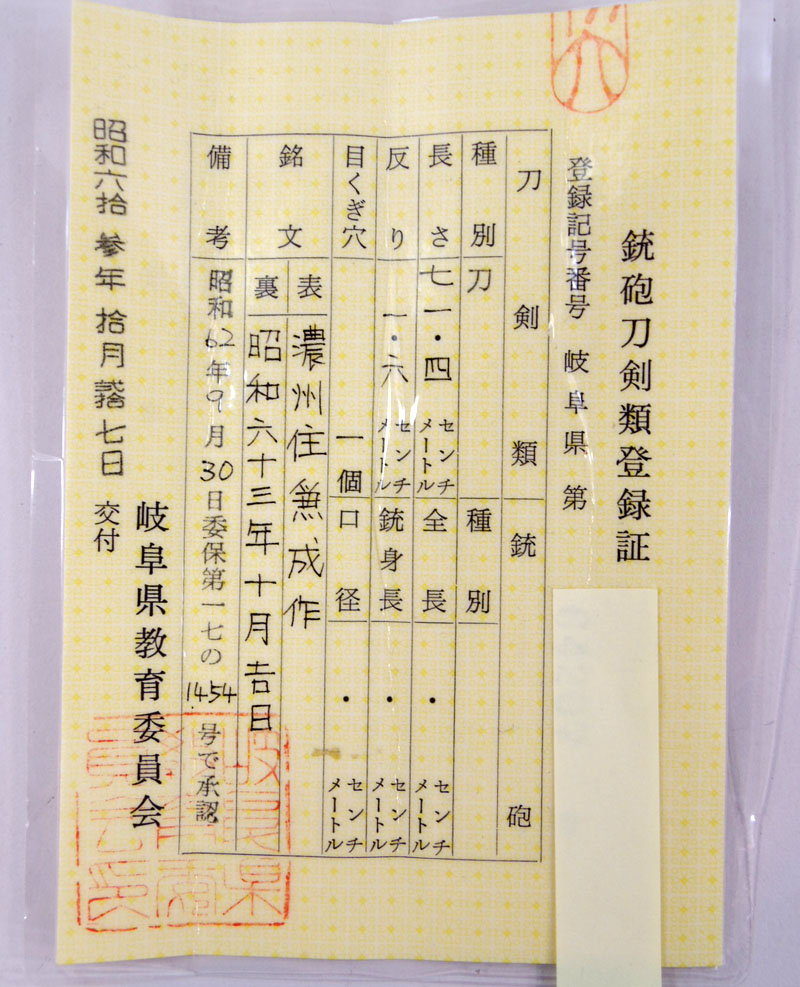 銃砲刀剣類登録証
登録記号番号 岐阜県 第
刀剣類
銃砲
種別 刀
種別
長さ 七一・四 センチメートル
全長 ・ センチメートル
反り 一・六 センチメートル
銃身長 ・ センチメートル
目くぎ穴 一個
口径 ・ センチメートル
銘文
表 濃州住兼成作
裏 昭和六十三年十月吉日
備考 昭和62年9月30日委保第一七の1454号で承認
岐阜県教育委員会
昭和六拾参年拾月弐拾七日 交付